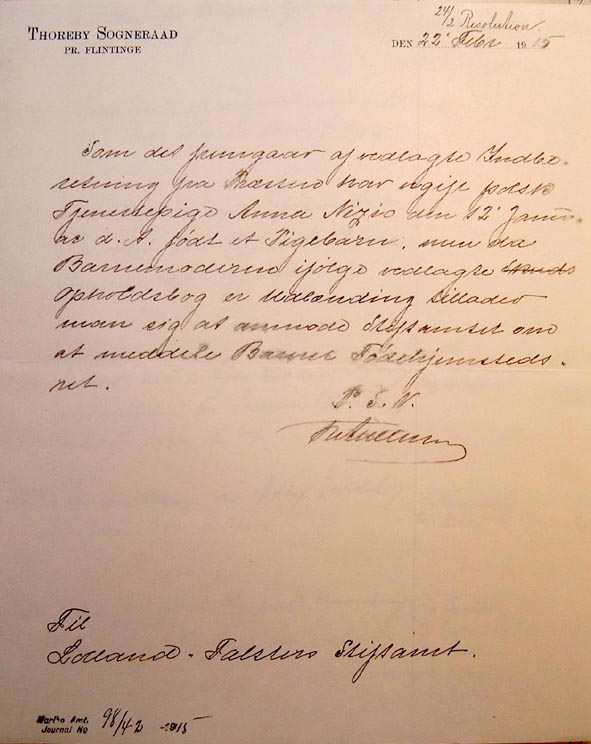 24/2 Resolution.
THOREBY SOGNERAAD
PR. FLINTINGE
DEN 22' Febr 1915
Som det fremgaar af vedlagte Indbe-
retning fra Præsten har ugift polsk
Tjenestepige Anna Nizio den 12' Janu-
ar d. A. født et Pigebarn, men da
Barnemoderen ifølge vedlagte
Opholdsbog er Udlænding tillader
man sig at anmode Stiftamtet om
at meddele Barnet Fødehjemsteds-
ret.
P. S. V.
Til
Lolland-Falsters Stiftamt.
Maribo Amt.
Journal No 98/42 -1915